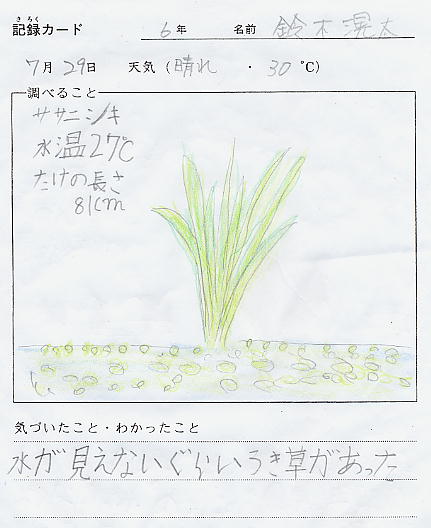 きろく
記録カード 6年 名前 鈴木滉太
7月29日 天気(晴れ ・ 30℃)
調べること
ササニシキ
水温27℃
たけの長さ
81cm
気づいたこと・わかったこと
水が見えないぐらいうき草があった